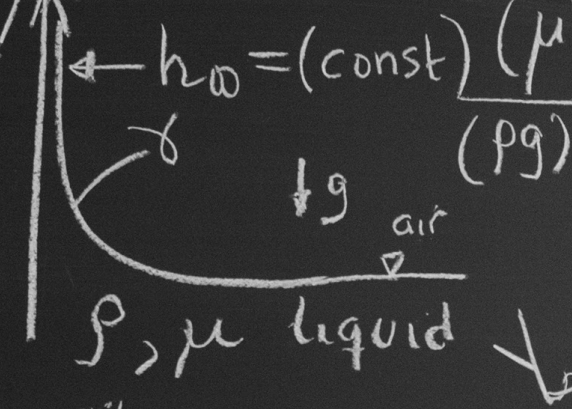 h∞ = (const) (μ
(ρg)
γ
g
air
ρ, μ liquid